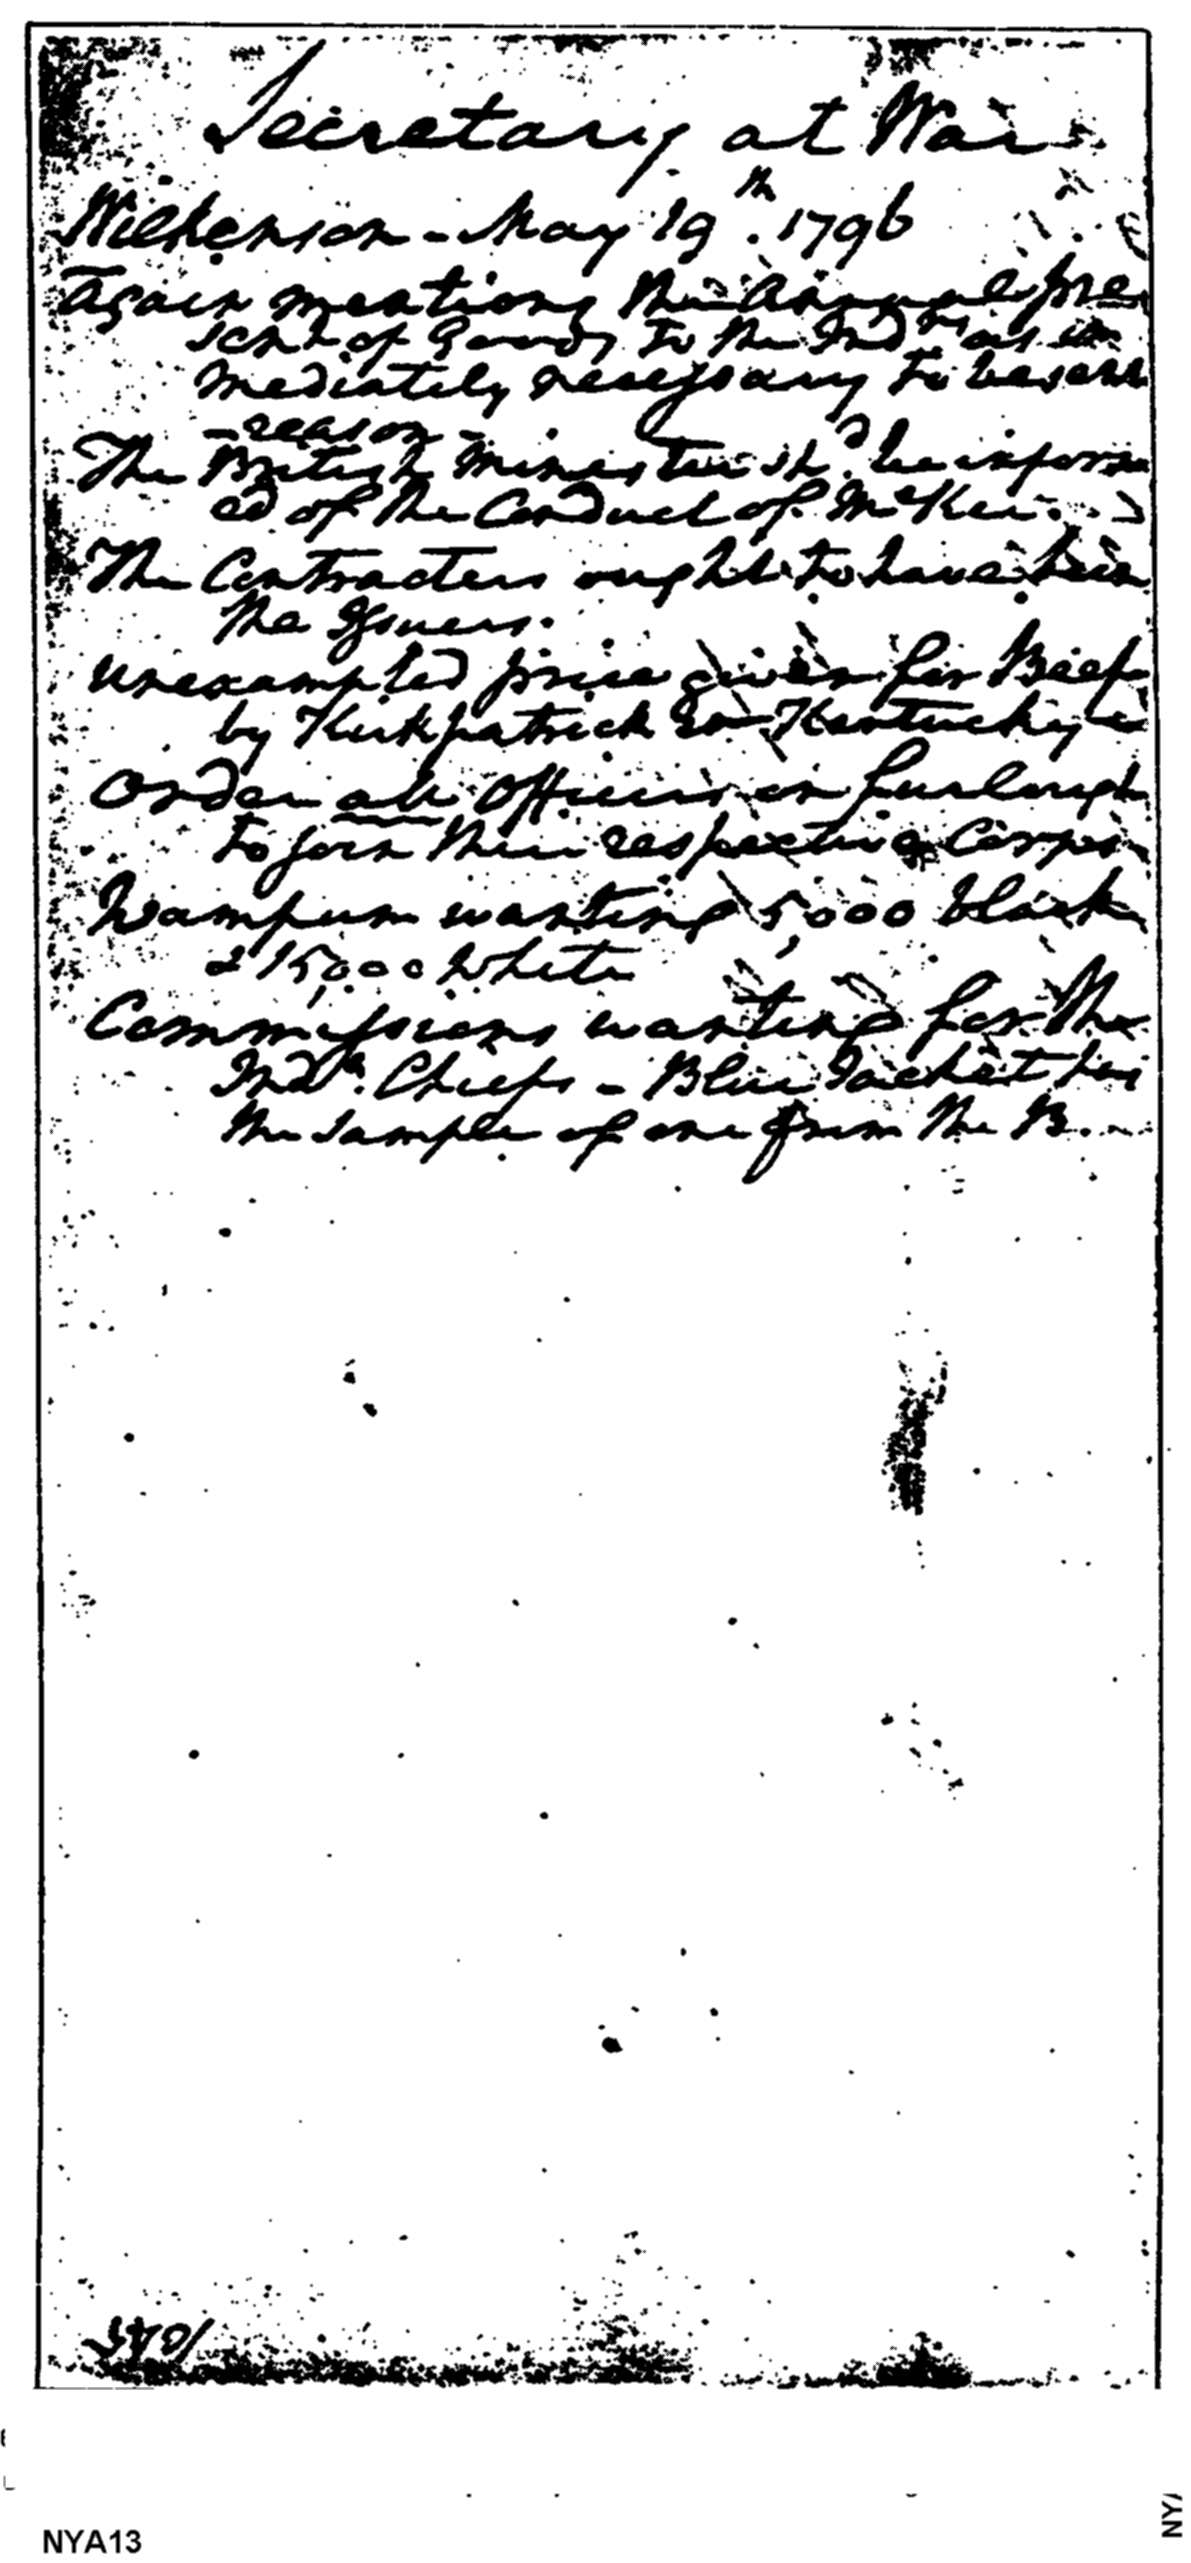 Secretary at War
Wilkenson - May 19th. 1796
Again mentions the Annual pre
sent of Goods to the Inds. as im
mediately necessary to be sent
- reason -
The British Minester shd. be inform
ed of the Conduct of McKee.
The Contracters ought to have been
the Issuers.
Unexampled price given for Beef
by Kirkpatrick in Kentucky &c
Order all Officers on furlough
to join their respective Corps
Wampum wanting 5,000 black
& 15,000 White
Commissions wanting for the
Indn. Chiefs - Blue Jacket has
the sample of one from the B.
1045
NYA13
NY